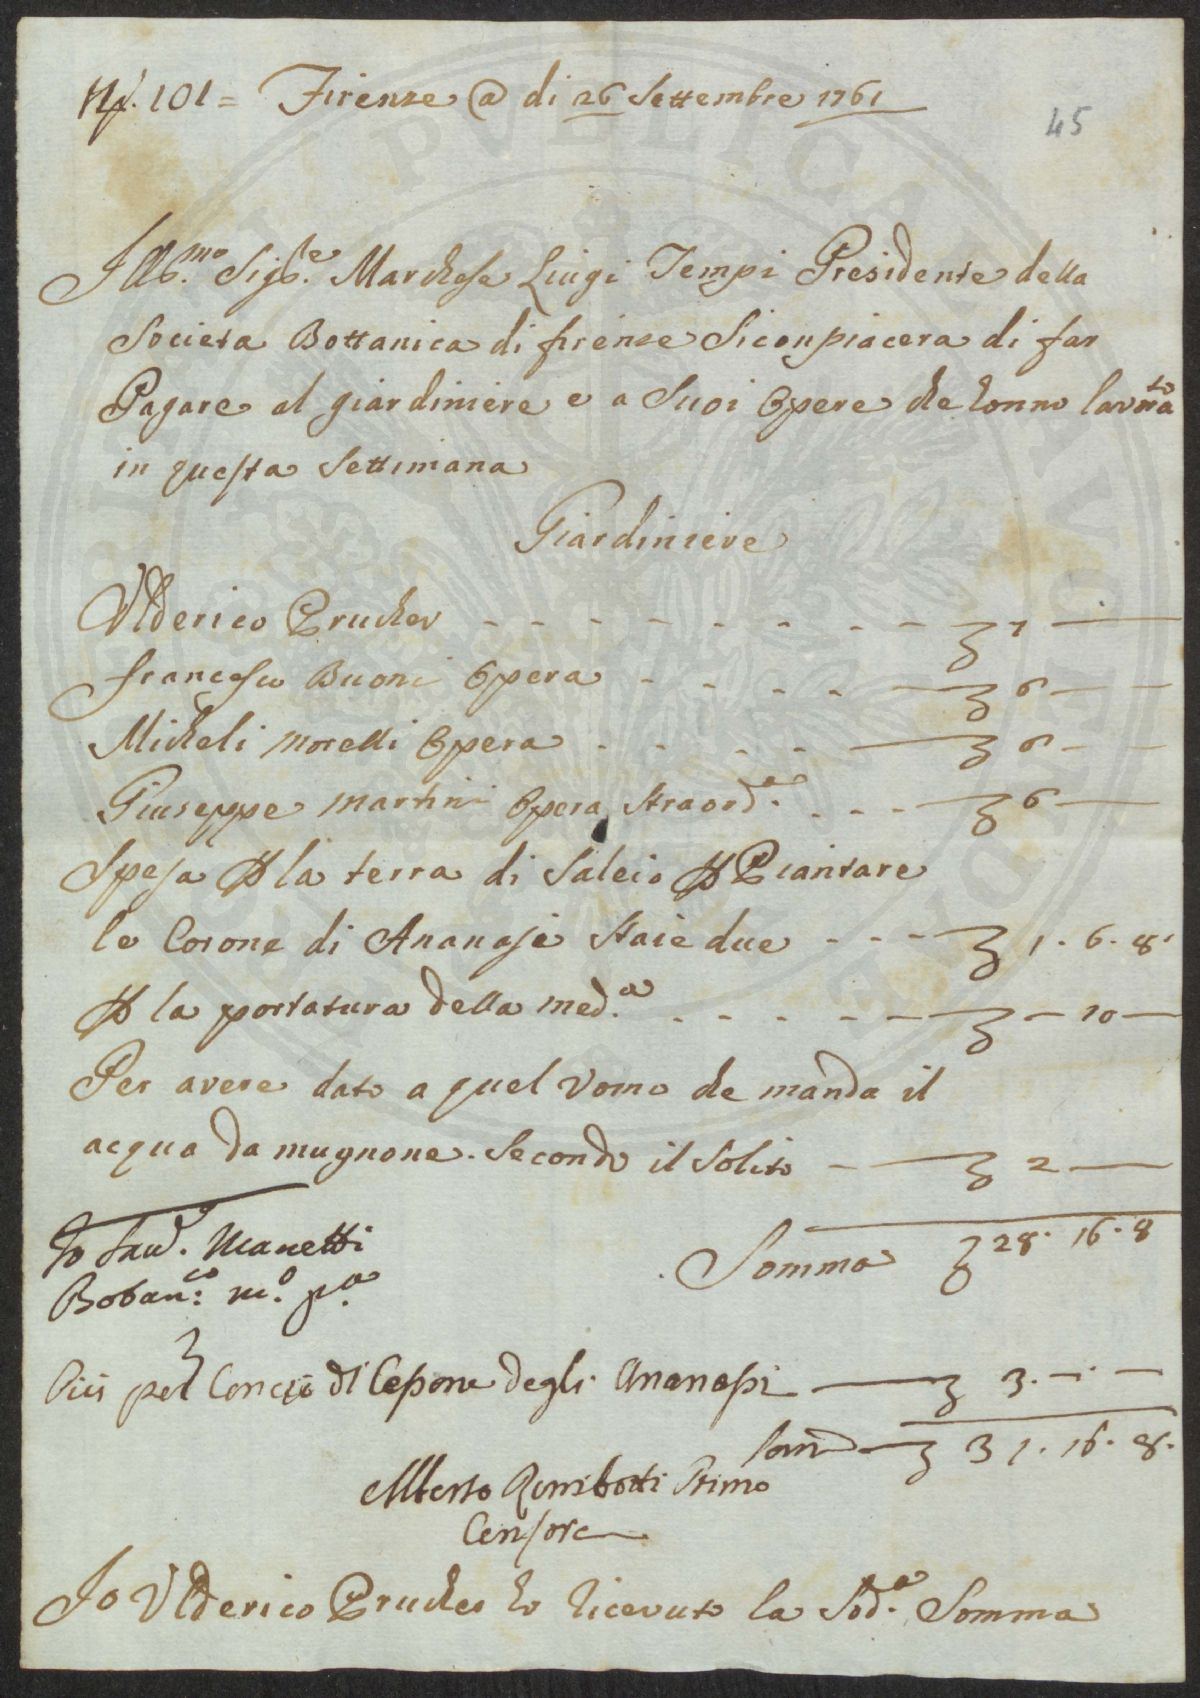 N.º 101 = Firenze @ di 26 Settembre 1761
45
Illᵐᵒ. Sigᵉ. Marchese Luigi Tempi Presidente della
Societa Bottanica di firenze Si conpiacera di far
Pagare al giardiniere e a Suoi Opere che honno lavorato
in questa Settimana
Giardiniere
Ulderico Prucher - - - - - - - - - 7 —
francesco Buoni Opera - - - - - 6 — —
Micheli Morelli Opera - - - - — 6 — —
Giuseppe Martini Opera Straordᵃ. - - - — 6 —
Spesa ꝑ la terra di Salcio ꝑ Piantare
le Corone di Ananasi Staie due - - - — 1. 6. 8.
ꝑ la portatura della medᵃ. - - - - - — — 10 —
Per avere dato a quel Vomo che manda il
acqua da mugnone. Secondo il Solito - — 2 —
Io Saud. Manetti
Botanᶜᵒ: mº. pᵃ.
Somma 28. 16. 8
Più pel Concio di Cespone degli Ananassi — 3. — . —
Som — 31. 16. 8.
Alberto Rimbotti Primo
Censore
Io Ulderico Prucher ho Ricevuto la Sodᵃ. Somma